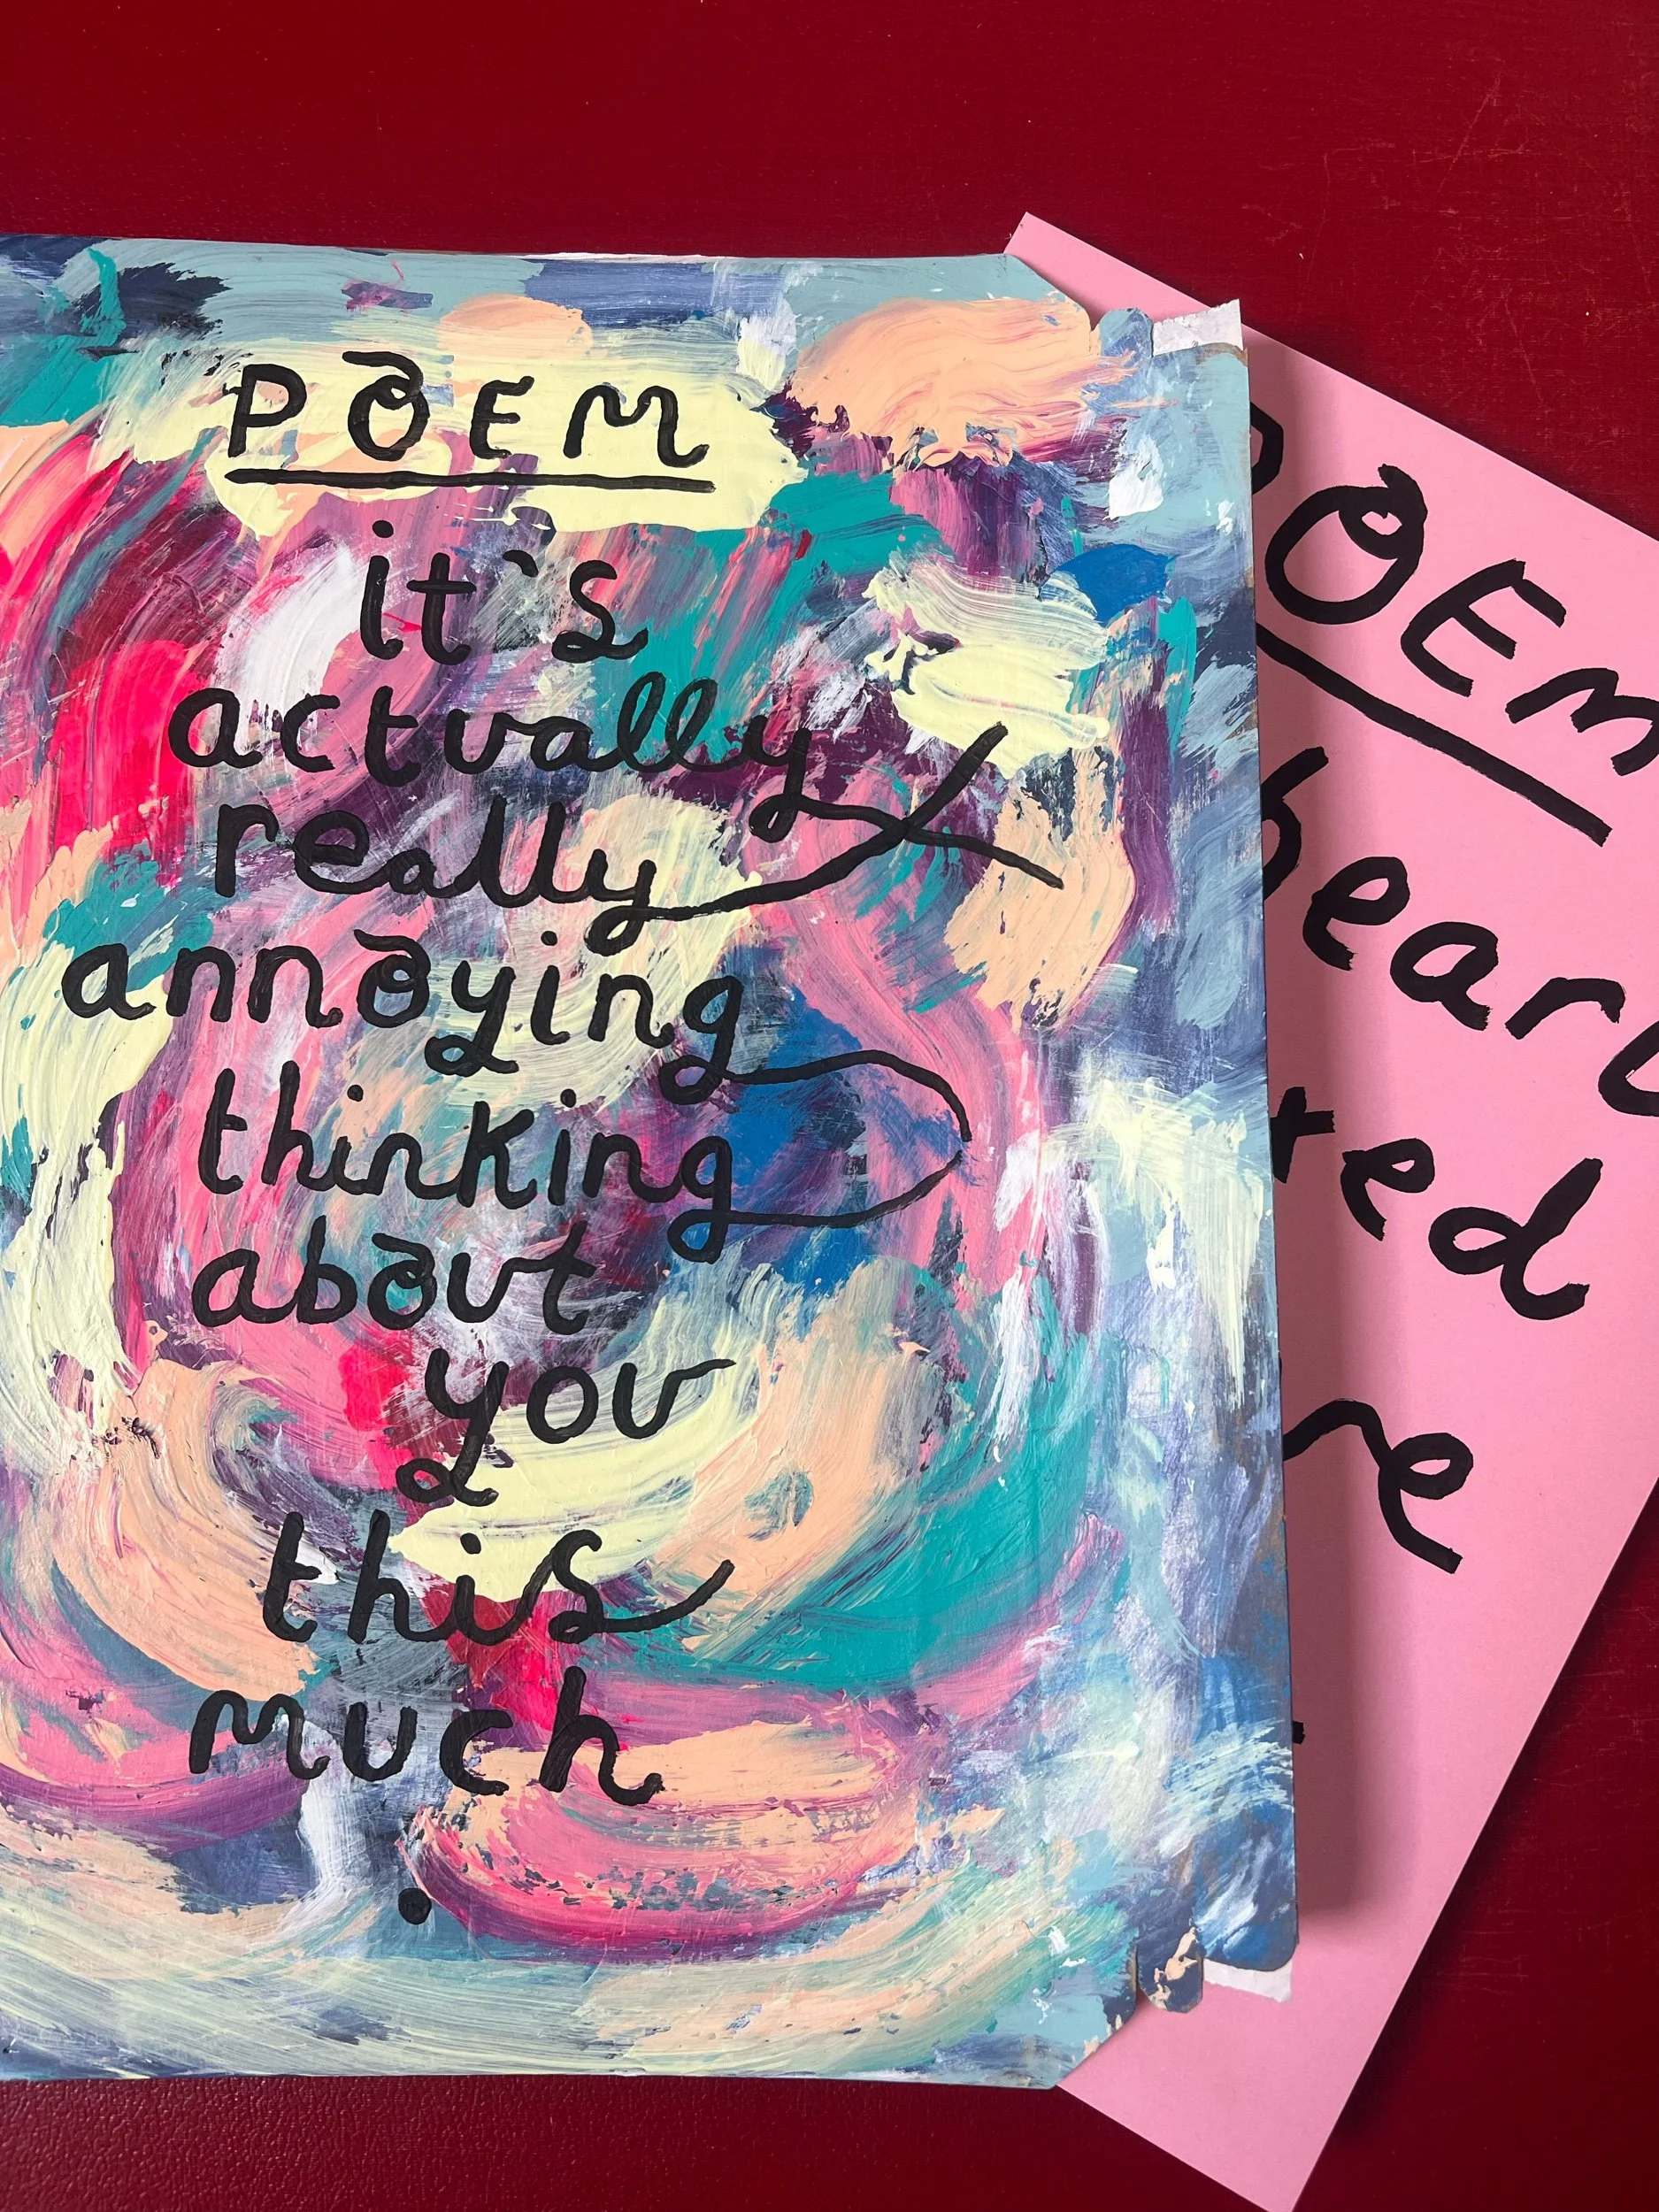 POEM
it's
actually
really
annoying
thinking
about
you
this
much
.
POEM